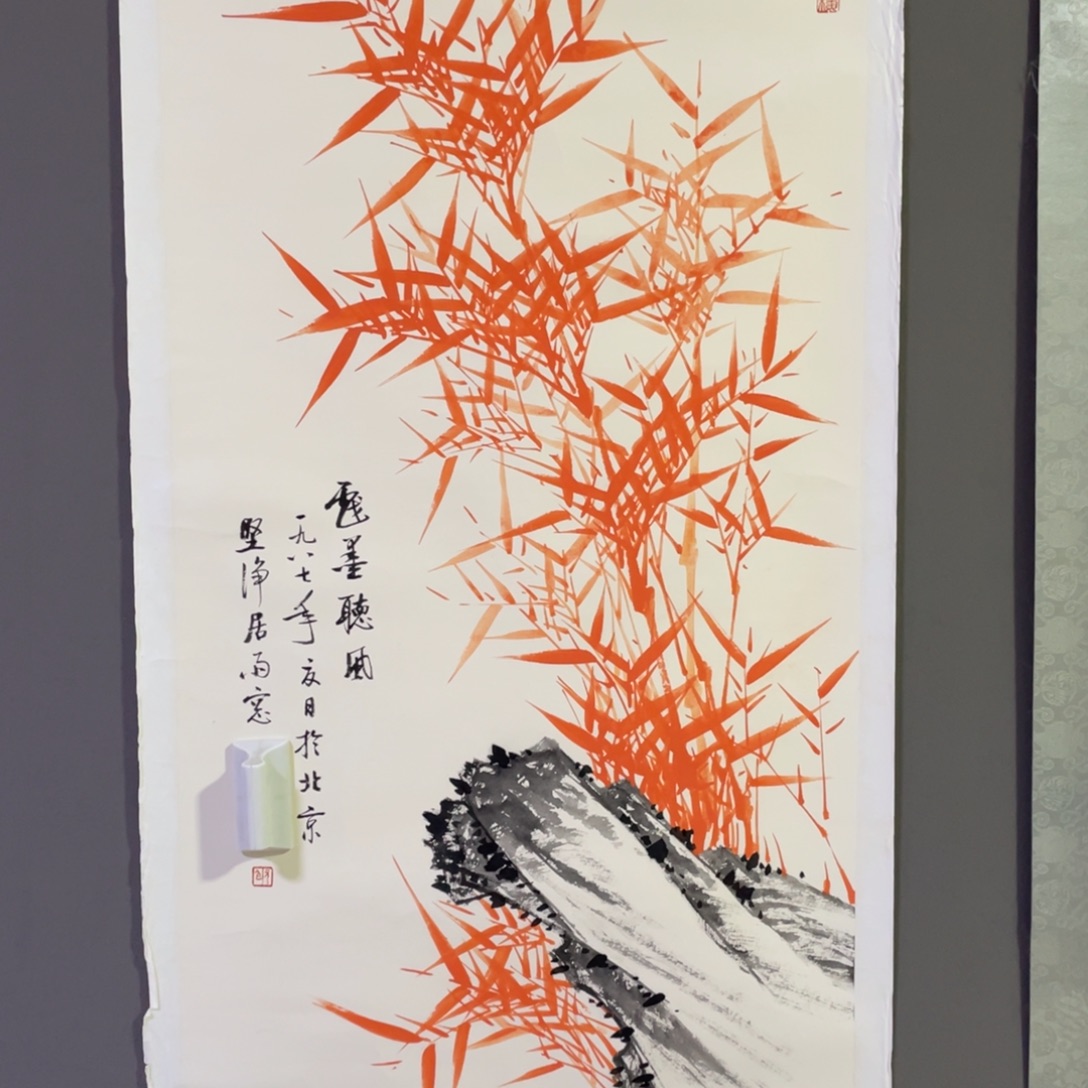 墨聽風
一九八七年夏日於北京
堅淨居雨窓